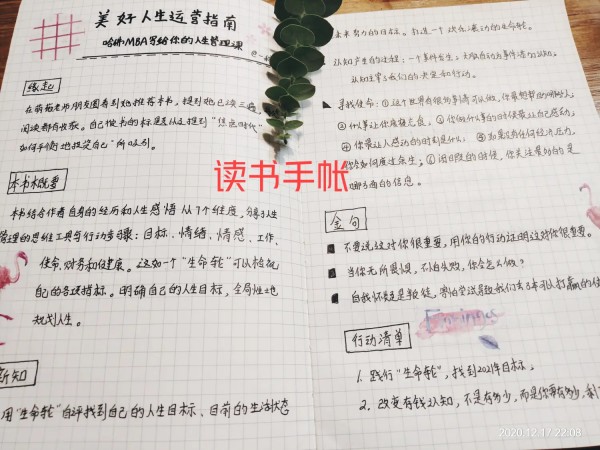 美好人生运营指南
哈佛MBA写给你的人生管理课
缘起
在萌薇老师朋友圈看到她推荐本书，提到她已读三遍，
阅读都有收获。自己被书的标题及从文提到“焦点时代”
如何平衡地投资自己”所吸引。
本书概要
本书结合作者自身的经历和人生感悟从7个维度，分享人生
管理的思维工具与行动步骤：目标、情绪、情感、工作、
使命、财务和健康。这如一个“生命轮”可以检视
自己的各项指标。明确自己的人生目标，全局性地
规划人生。
新知
用“生命轮”自评找到自己的人生目标、目前的生活状态
未来努力的目标。打造一个快乐滚动的生命轮。
认知产生的过程：一个事件发生，大脑自动为事件添加认知。
认知主宰了我们的决定和行动。
寻找使命：①这个世界有很多事情可以做，你最想帮助哪些人；
②什么事让你废寝忘食；③你做什么事的时候最让自己感动；
④你最让人感动的时刻是什么；⑤如果没有任何经济压力，
你会如何度过余生；⑥闲暇的时候，你关注最多的是
哪方面的信息。
读书手帐
金句
不要说这对你很重要，用你的行动证明这对你很重要。
当你无所畏惧，不怕失败，你会怎么做？
自我怀疑是叛徒，害怕尝试导致我们失去本可以打赢的仗
行动清单
1. 践行“生命轮”，找到2021年目标；
2. 改变有钱认知，不是有多少，而是你要有多少，剩
2020.12.17 22:08